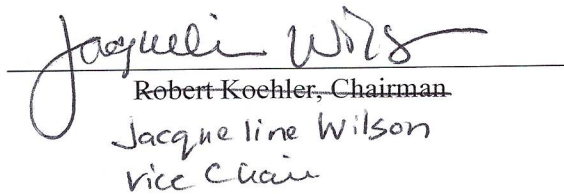 Jacqueline Wilson
Robert Koehler, Chairman
Jacqueline Wilson
Vice Chair